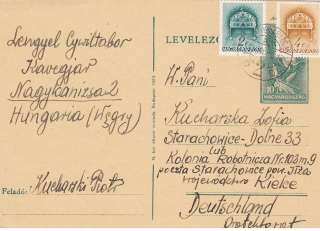 LEVELEZŐ
Lengyel Cywiltabor
Kavegyár
Nagykanizsa 2
Hungaria (Węgry)
Feladó: Kucharski Piotr
MAGYARORSZÁG
W. Pani
Kucharska Zofia
Starachowice-Dolne 33
lub
Kolonia Robotnicza Nr 103 m 9
poczta Starachowice pow. Iłża
województwo Kielce
Deutschland